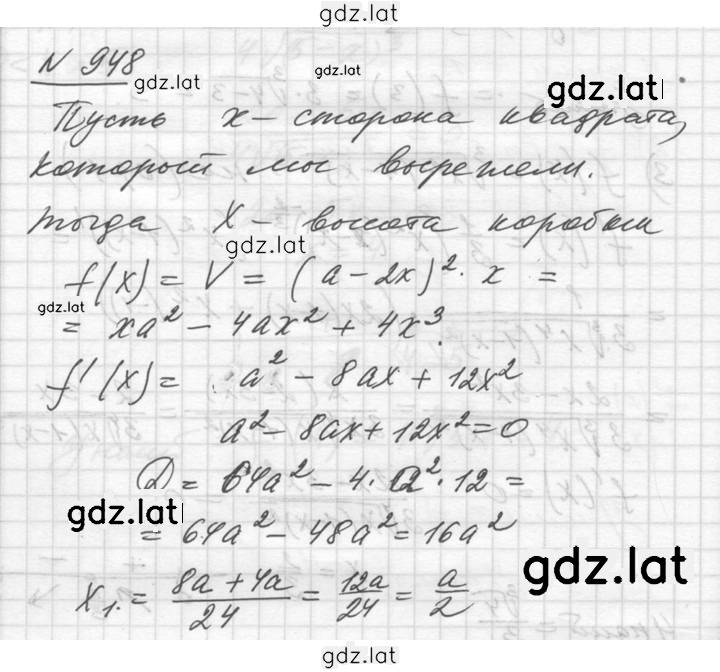 gdz.lat
N 948
gdz.lat
gdz.lat
gdz.lat
Пусть x - сторона квадрата,
который мы вырежели.
тогда X - высота коробки
gdz.lat
f(x) = V = (a - 2x)² · x =
gdz.lat
= xa² - 4ax² + 4x³.
f'(x) = a² - 8ax + 12x²
a² - 8ax + 12x² = 0
D = 64a² - 4 · a² · 12 =
gdz.lat
= 64a² - 48a² = 16a²
gdz.lat
x₁. = (8a + 4a)/24 = 12a/24 = a/2
gdz.lat